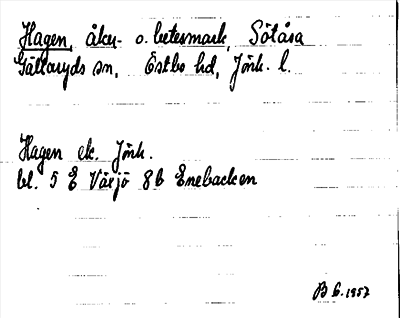 Hagen, åker- o. betesmark, Sötåsa
Gällaryds sn, Östbo hd, Jönk. l.
Hagen ek. Jönk.
bl. 5 E Växjö 8b Enebacken
B G. 1957